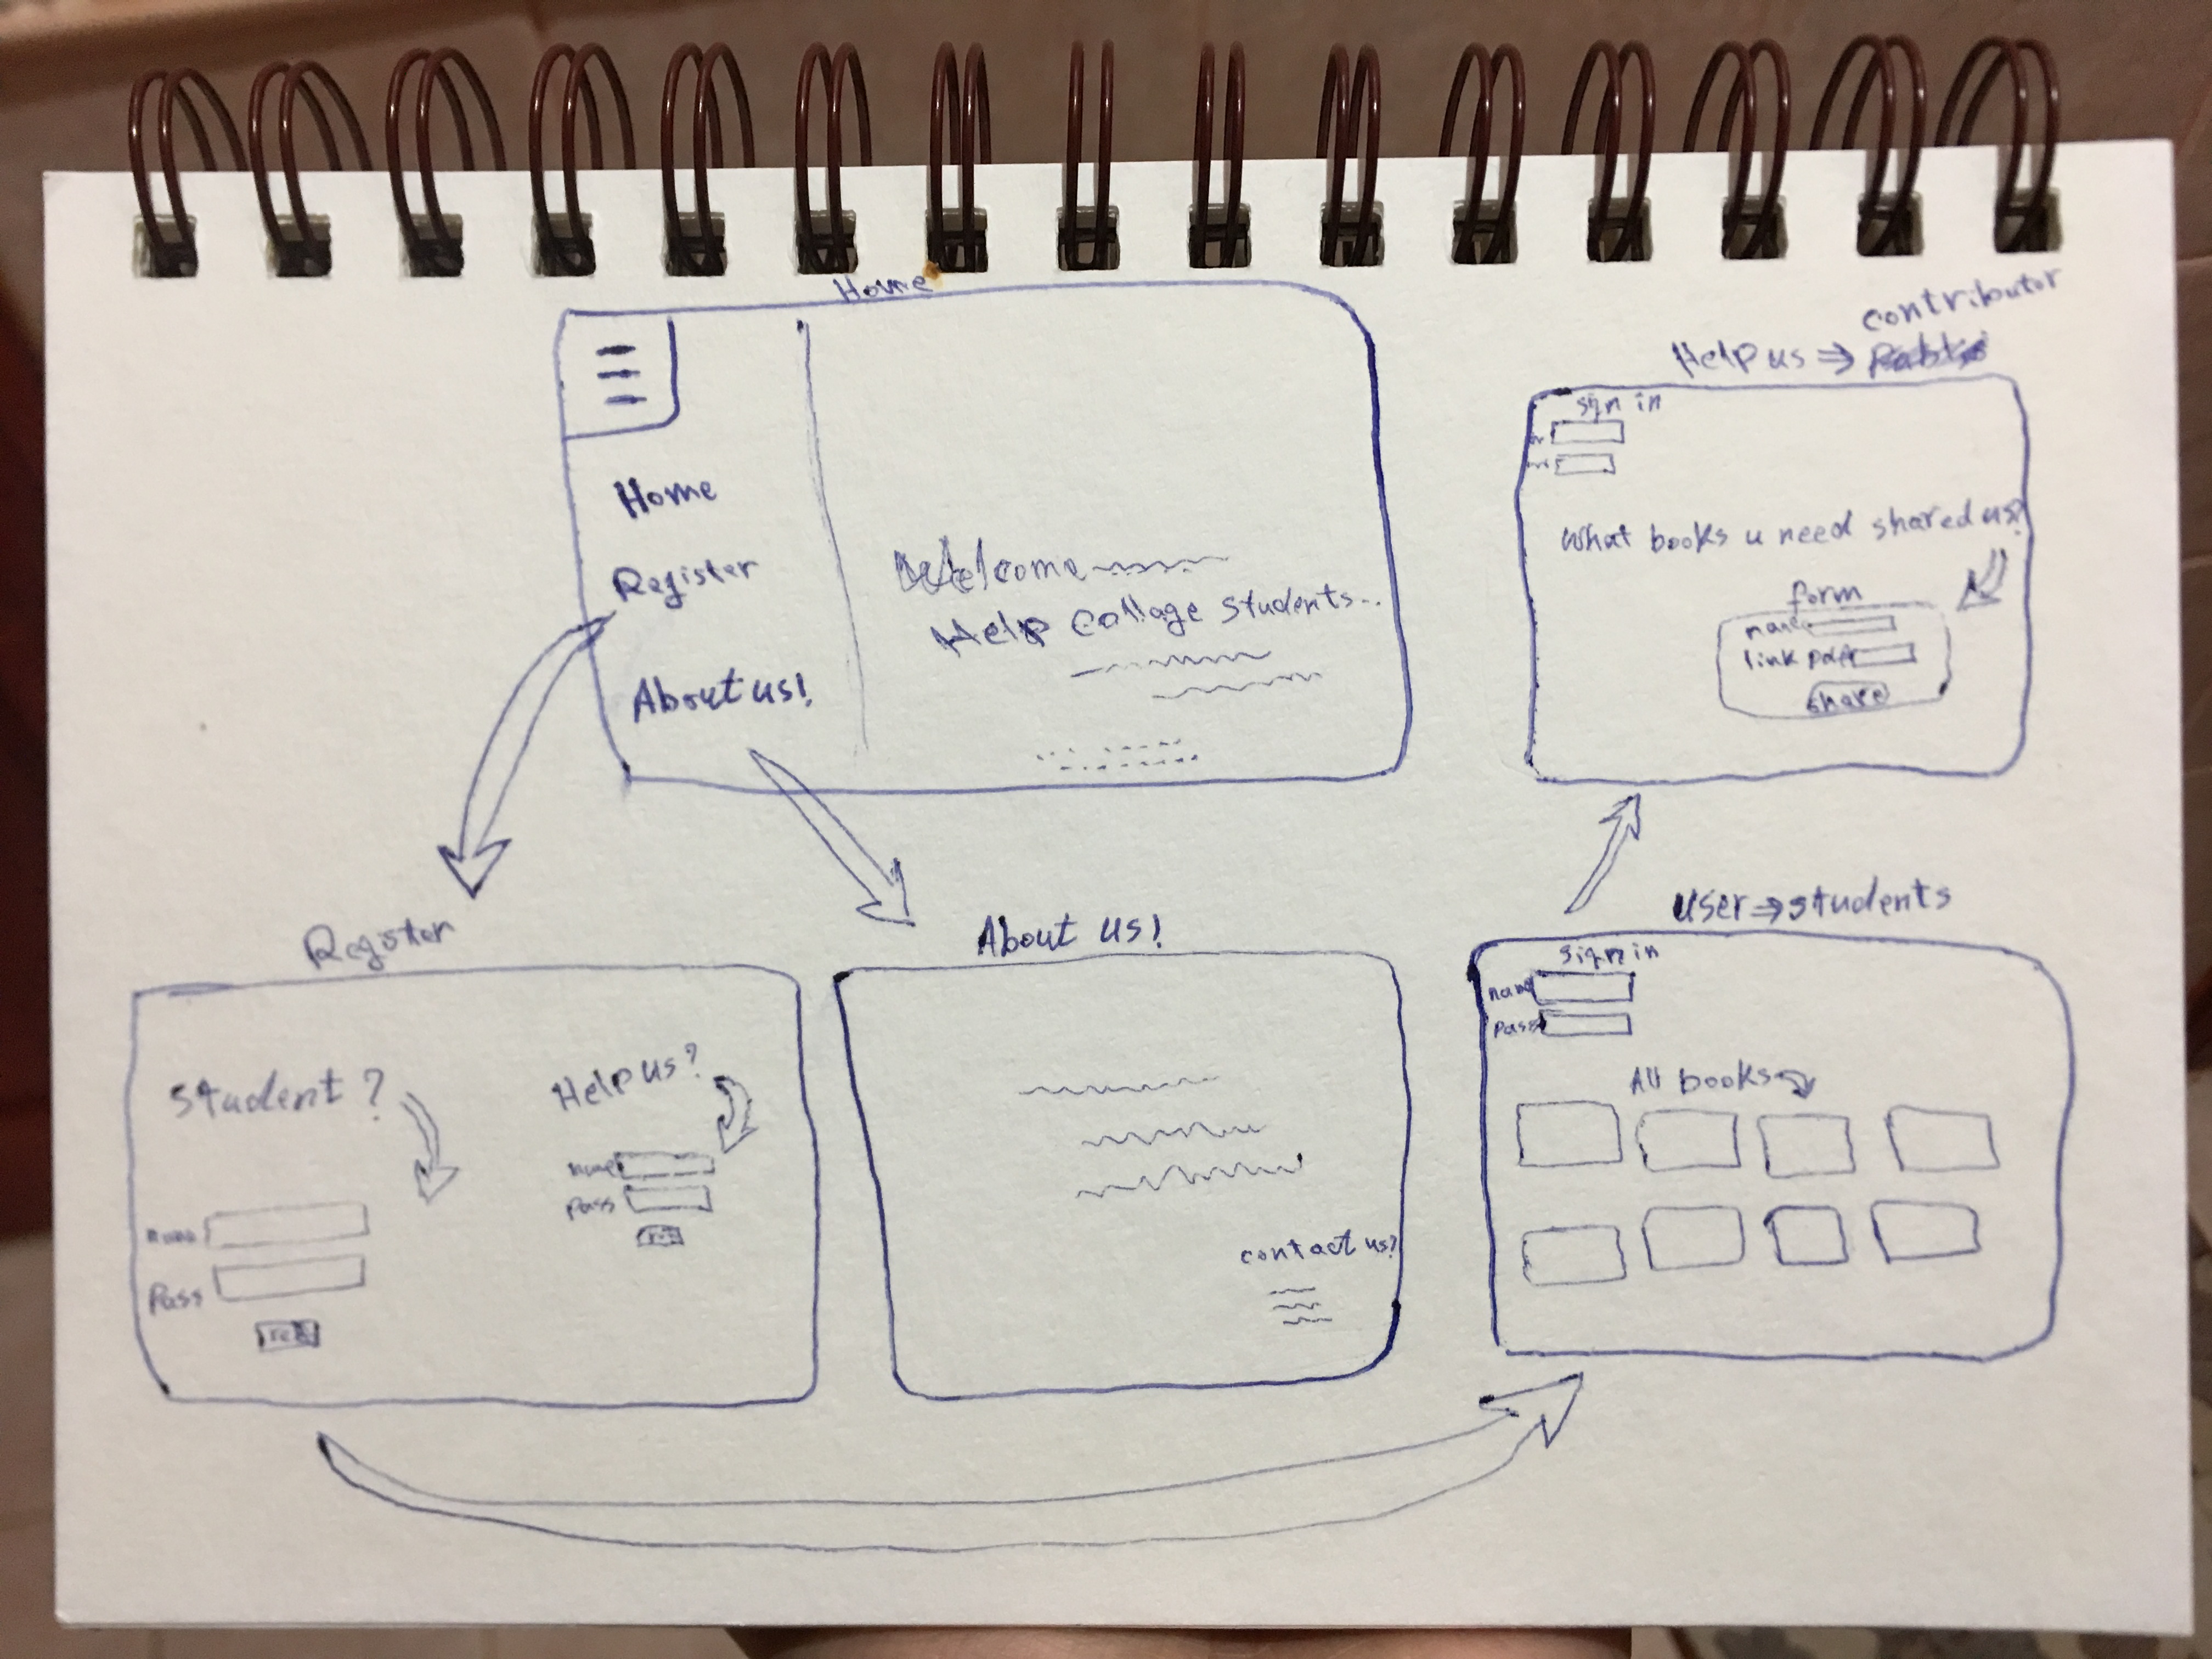 Home
Home
Register
About us!
Welcome
Help collage students...
contributor
Help us ⇒
sign in
What books u need shared us?
form
name
link pdf
share
Register
Student ?
name
Pass
Help us?
name
Pass
About us!
contact us?
user ⇒ students
sign in
name
pass
All books